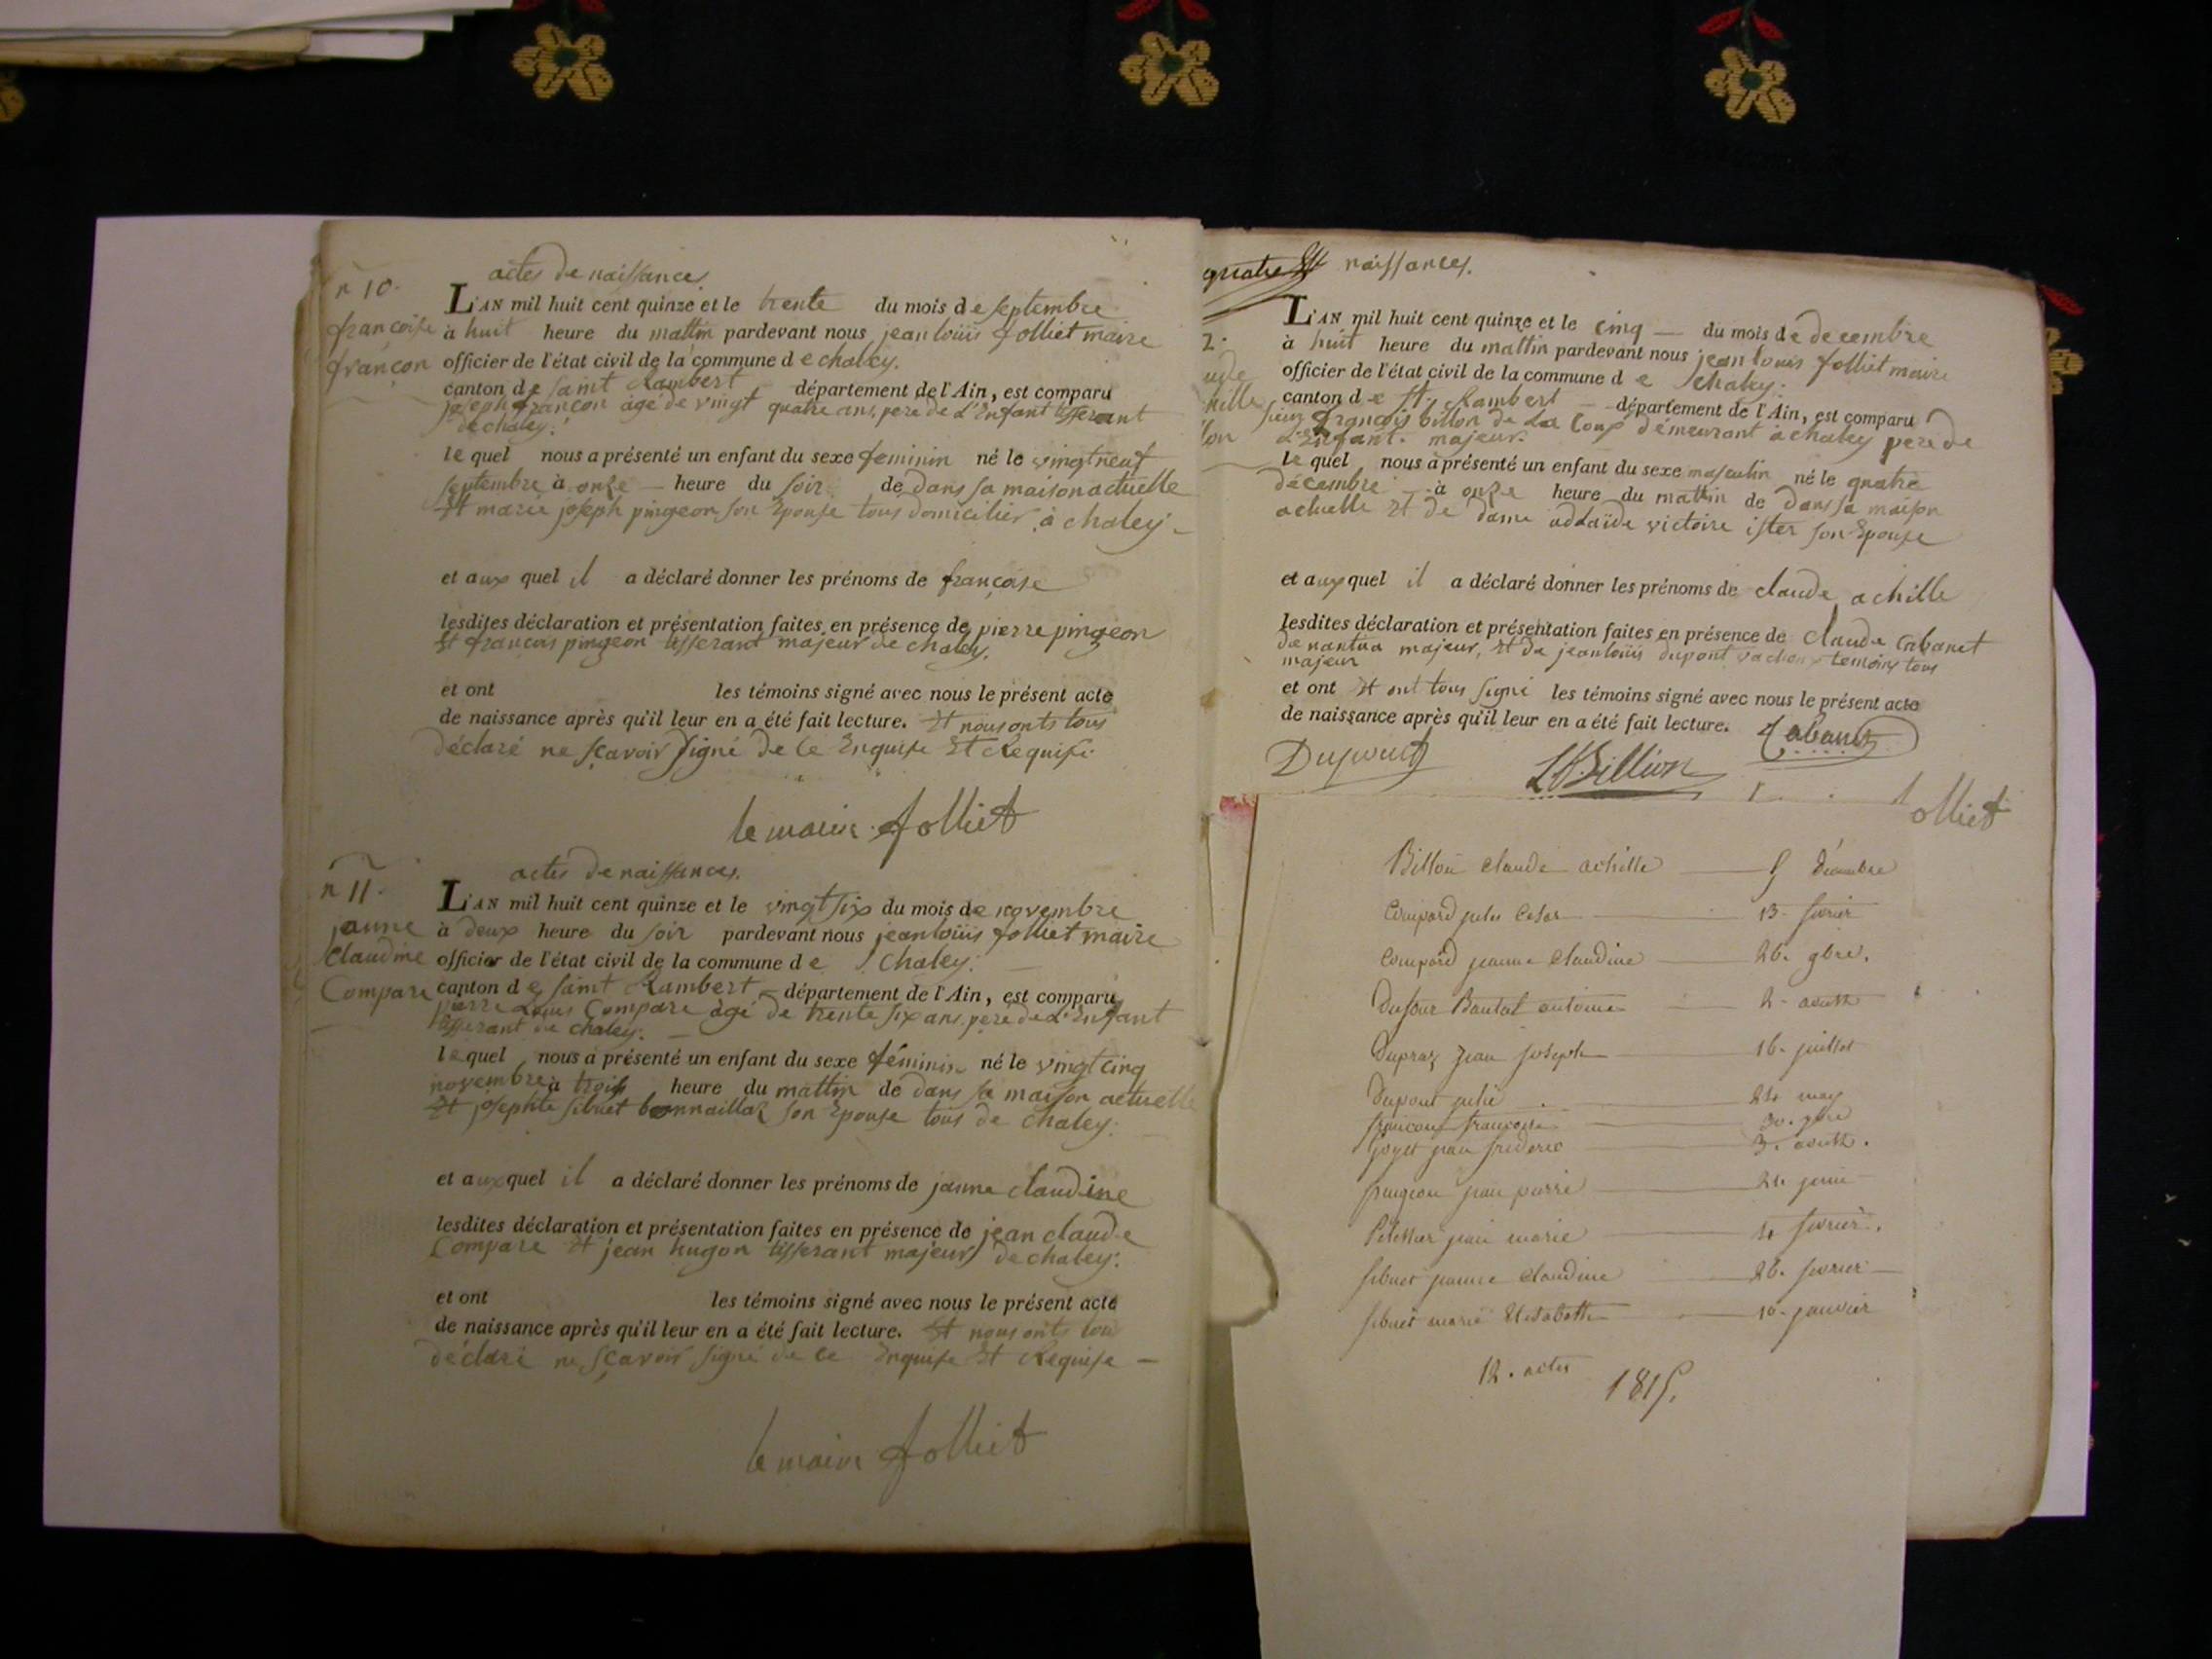 actes de naissances
n 10.
françoise
françon
L'AN mil huit cent quinze et le trente du mois de septembre
à huit heure du mattin pardevant nous jean louiis folliet maire
officier de l'état civil de la commune de chaley.
canton de saint Rambert département de l'Ain, est comparu
joseph françon agé de vingt quatre ans, pere de L'Enfant tisserant
de chaley.
lequel nous a présenté un enfant du sexe feminin né le vingt neuf
septembre à onze heure du soir de dans sa maison actuelle
Et marie joseph pingeon son Epouse tous domicilier à chaley
et aux quel il a déclaré donner les prénoms de françoise
lesdites déclaration et présentation faites en présence de pierre pingeon
Et francois pingeon tisserant majeur de chaley.
et ont les témoins signé avec nous le présent acte
de naissance après qu'il leur en a été fait lecture. Et nous onts tous
déclaré ne sçavoir signé de ce Enquise Et Requise
le maire folliet
actes de naissances.
n 11.
janne
Claudine
Compare
L'AN mil huit cent quinze et le vingt six du mois de novembre
à deux heure du soir pardevant nous jean louiis folliet maire
officier de l'état civil de la commune de Chaley.
canton de saint Rambert département de l'Ain, est comparu
pierre Louis Compare agé de trente six ans, pere de L'Enfant
tisserant de chaley.
lequel nous a présenté un enfant du sexe féminin né le vingt cinq
novembre à trois heure du mattin de dans sa maison actuelle
Et josephte sibuet bonnaillaz son Epouse tous de chaley.
et aux quel il a déclaré donner les prénoms de janne claudine
lesdites déclaration et présentation faites en présence de jean claude
Compare Et jean hugon tisserant majeur de chaley.
et ont les témoins signé avec nous le présent acte
de naissance après qu'il leur en a été fait lecture. Et nous onts tou
déclaré ne sçavoir signé de ce Enquise Et Requise
le maire folliet
naissances.
2.
ude
hille
lon
L'AN mil huit cent quinze et le cinq du mois de decembre
à huit heure du mattin pardevant nous jean louis folliet maire
officier de l'état civil de la commune de Chaley.
canton de St. Rambert département de l'Ain, est comparu
sieur François billon de La Coup demeurant à chaley pere de
L'Enfant. majeur.
lequel nous a présenté un enfant du sexe masculin né le quatre
décembre à onze heure du mattin de dans sa maison
actuelle Et de dame adelaïde victoire ister son Epouse
et aux quel il a déclaré donner les prénoms de claude achille
lesdites déclaration et présentation faites en présence de Claude Cabanet
de nantua majeur, Et de jean louiis dupont temoins tous
majeur
et ont Et ont tous signé les témoins signé avec nous le présent acte
de naissance après qu'il leur en a été fait lecture. Cabanet
Dupont Billion
olliet
Billon Claude achille 5 Décembre
Compard jules Cesar 13. fevrier
Compard jeanne Claudine 26. 9bre.
Dufour Bautat antoine 2. aoust
Dupraz Jean Joseph 16. juillet
Dupont julie 24 may
françon françoise 30. 7bre
Goyet jean frederic 3. aoust.
pingeon jean pierre 24 juin
Pelissier jean marie 4 fevrier.
Sibuet jeanne Claudine 26. fevrier
Sibuet marie Elisabeth 10. janvier
12. actes
1815.